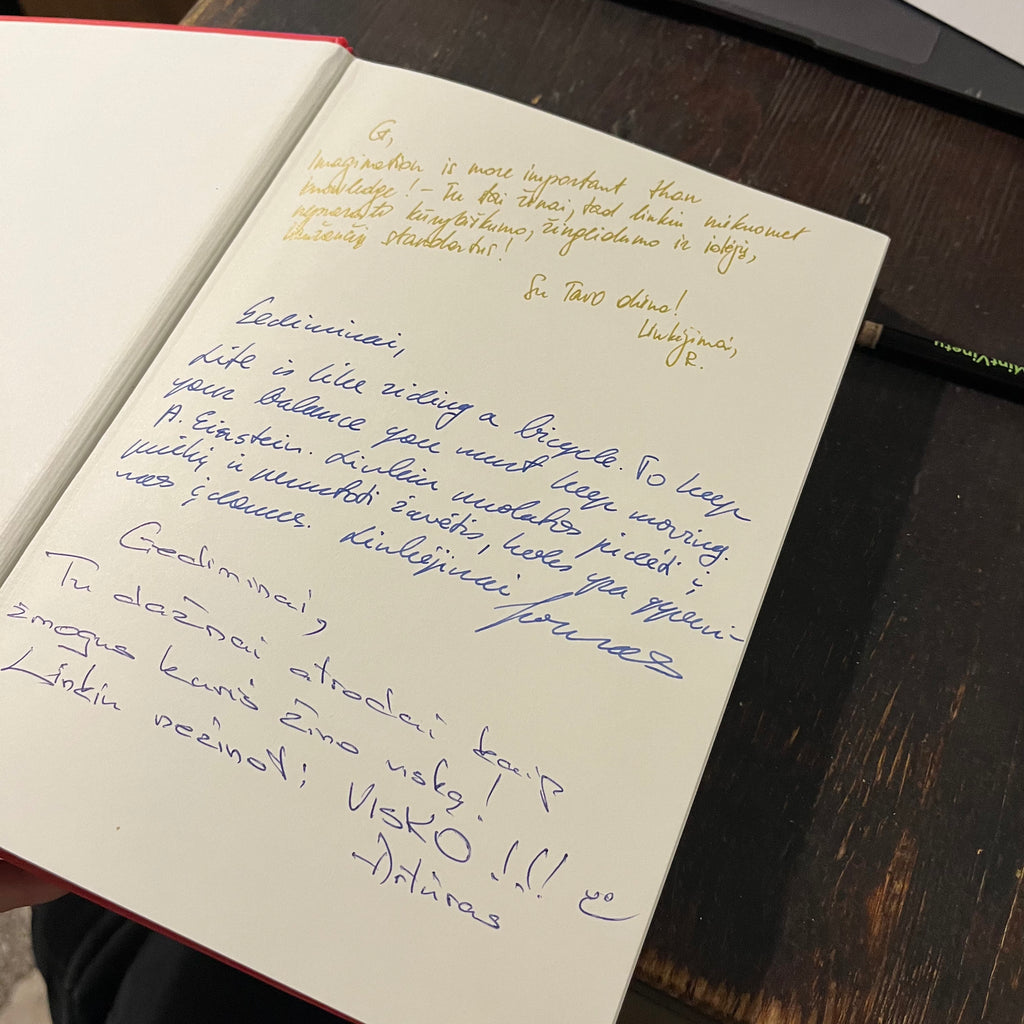 G,
Imagination is more important than
knowledge! – Tu tai žinai, tad linkiu niekuomet
neprarasti kūrybiškumo, žingeidumo ir idėjų,
laužančių standartus!
Su Tavo diena!
Linkėjimai,
R.
Gediminai,
Life is like riding a bicycle. To keep
your balance you must keep moving.
A. Einstein. Linkiu nuolatos judėti į
priekį ir nenustoti žavėtis, koks yra gyveni-
mas įdomus. Linkėjimai
Gediminai,
Tu dažnai atrodai kaip
žmogus kuris žino viską!
Linkiu nežinoti VISKO!!!
Artūras
MintVinetu